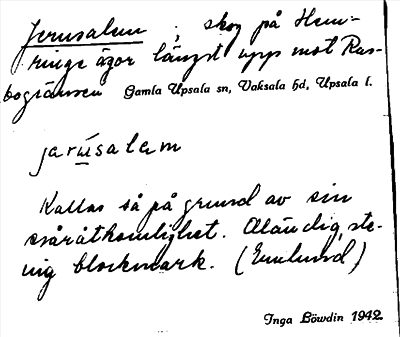 Jerusalem ; skog på Hem-
ringe ägor längst upp mot Ras-
bogränsen Gamla Upsala sn, Vaksala hd, Upsala l.
jarúsalem
Kallas så på grund av sin
svåråtkomlighet. Oländig, ste-
nig blockmark. (Emlund)
Inga Löwdin 1942.